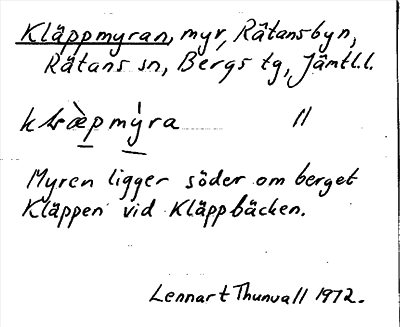 Kläppmyran, myr, Rätansbyn,
Rätans sn, Bergs tg, Jämtl.l.
myra //
Myren ligger söder om berget
Kläppen vid Kläppbäcken.
Lennart Thunvall 1972.